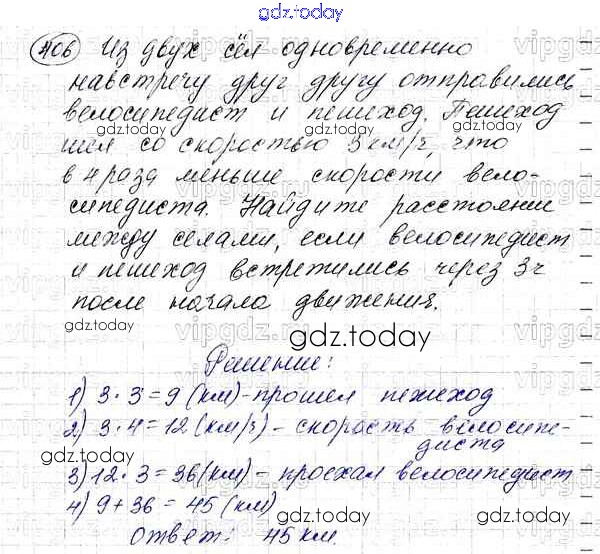 gdz.today
406 Из двух сёл одновременно
навстречу друг другу отправились
велосипедист и пешеход. Пешеход
шел со скоростью 3 км/ч, что
в 4 раза меньше скорости вело-
сипедиста. Найдите расстояние
между селами, если велосипедист
и пешеход встретились через 3ч
после начала движения.
gdz.today
Решение:
1) 3 · 3 = 9 (км) - прошел пешеход
2) 3 · 4 = 12 (км/ч) - скорость велосипе-
диста
3) 12 · 3 = 36 (км) - проехал велосипедист
4) 9 + 36 = 45 (км)
Ответ: 45 км.
gdz.today